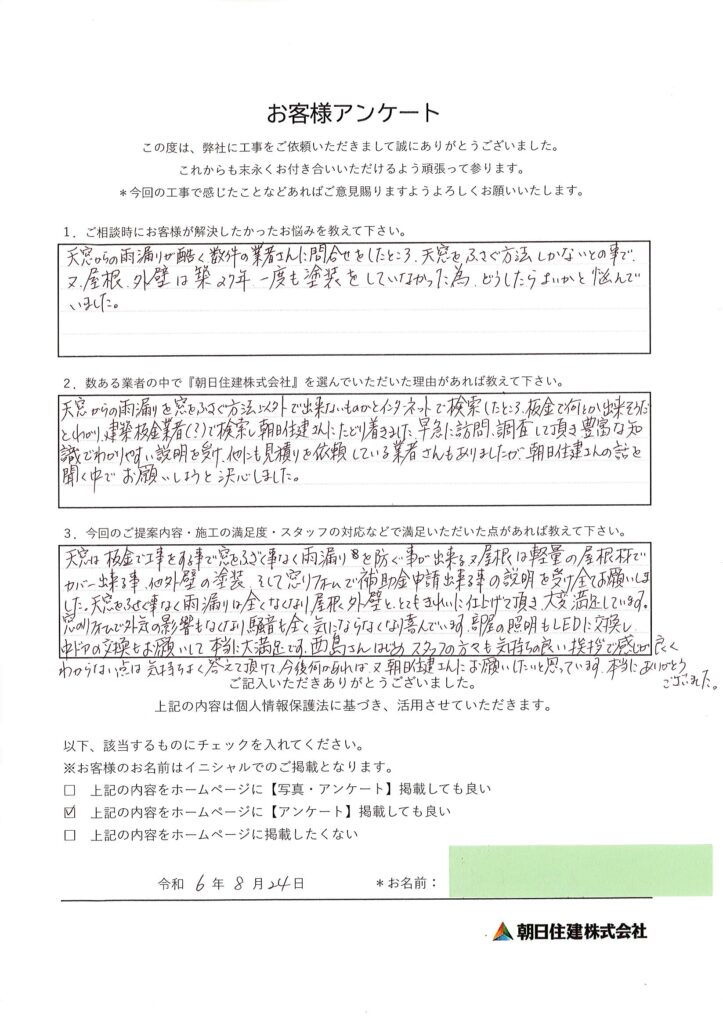 お客様アンケート
この度は、弊社に工事をご依頼いただきまして誠にありがとうございました。
これからも末永くお付き合いいただけるよう頑張って参ります。
＊今回の工事で感じたことなどあればご意見賜りますようよろしくお願いいたします。
1．ご相談時にお客様が解決したかったお悩みを教えて下さい。
天窓からの雨漏りが酷く数件の業者さんに問合せをしたところ、天窓をふさぐ方法しかないとの事で、
又、屋根、外壁は築27年、一度も塗装をしていなかった為、どうしたらよいかと悩んで
いました。
2．数ある業者の中で『朝日住建株式会社』を選んでいただいた理由があれば教えて下さい。
天窓からの雨漏りを窓をふさぐ方法以外で出来ないものかとインターネットで検索したところ、板金で何とか出来そうだ
とわかり、建築板金業者(?)で検索し朝日住建さんにたどり着きました。早急に訪問、調査して頂き豊富な知
識でわかりやすい説明を受け、他にも見積りを依頼している業者さんもありましたが、朝日住建さんの話を
聞く中でお願いしようと決心しました。
3．今回のご提案内容・施工の満足度・スタッフの対応などで満足いただいた点があれば教えて下さい。
天窓は板金で工事をする事で窓をふさぐ事なく雨漏りを防ぐ事が出来る、又屋根は軽量の屋根材で
カバー出来る事、他外壁の塗装、そして窓リフォームで補助金申請出来る事の説明を受け全てお願いしま
した。天窓をふさぐ事なく雨漏りは全くなくなり屋根、外壁と、とてもきれいに仕上げて頂き、大変満足しています。
窓のリフォームで外気の影響もなくなり騒音も全く気にならなくなり喜んでいます。部屋の照明もLEDに交換し
中ドアの交換もお願いして本当に大満足です。西島さんはじめ、スタッフの方々も気持ちの良い挨拶で感じが良く
わからない点は気持ちよく答えて頂けて、今後何かあれば、又朝日住建さんにお願いしたいと思っています。本当にありがとう
ございました。
ご記入いただきありがとうございました。
上記の内容は個人情報保護法に基づき、活用させていただきます。
以下、該当するものにチェックを入れてください。
※お客様のお名前はイニシャルでのご掲載となります。
☐ 上記の内容をホームページに【写真・アンケート】掲載しても良い
☑ 上記の内容をホームページに【アンケート】掲載しても良い
☐ 上記の内容をホームページに掲載したくない
令和 6 年 8 月 24 日 ＊お名前：
朝日住建株式会社